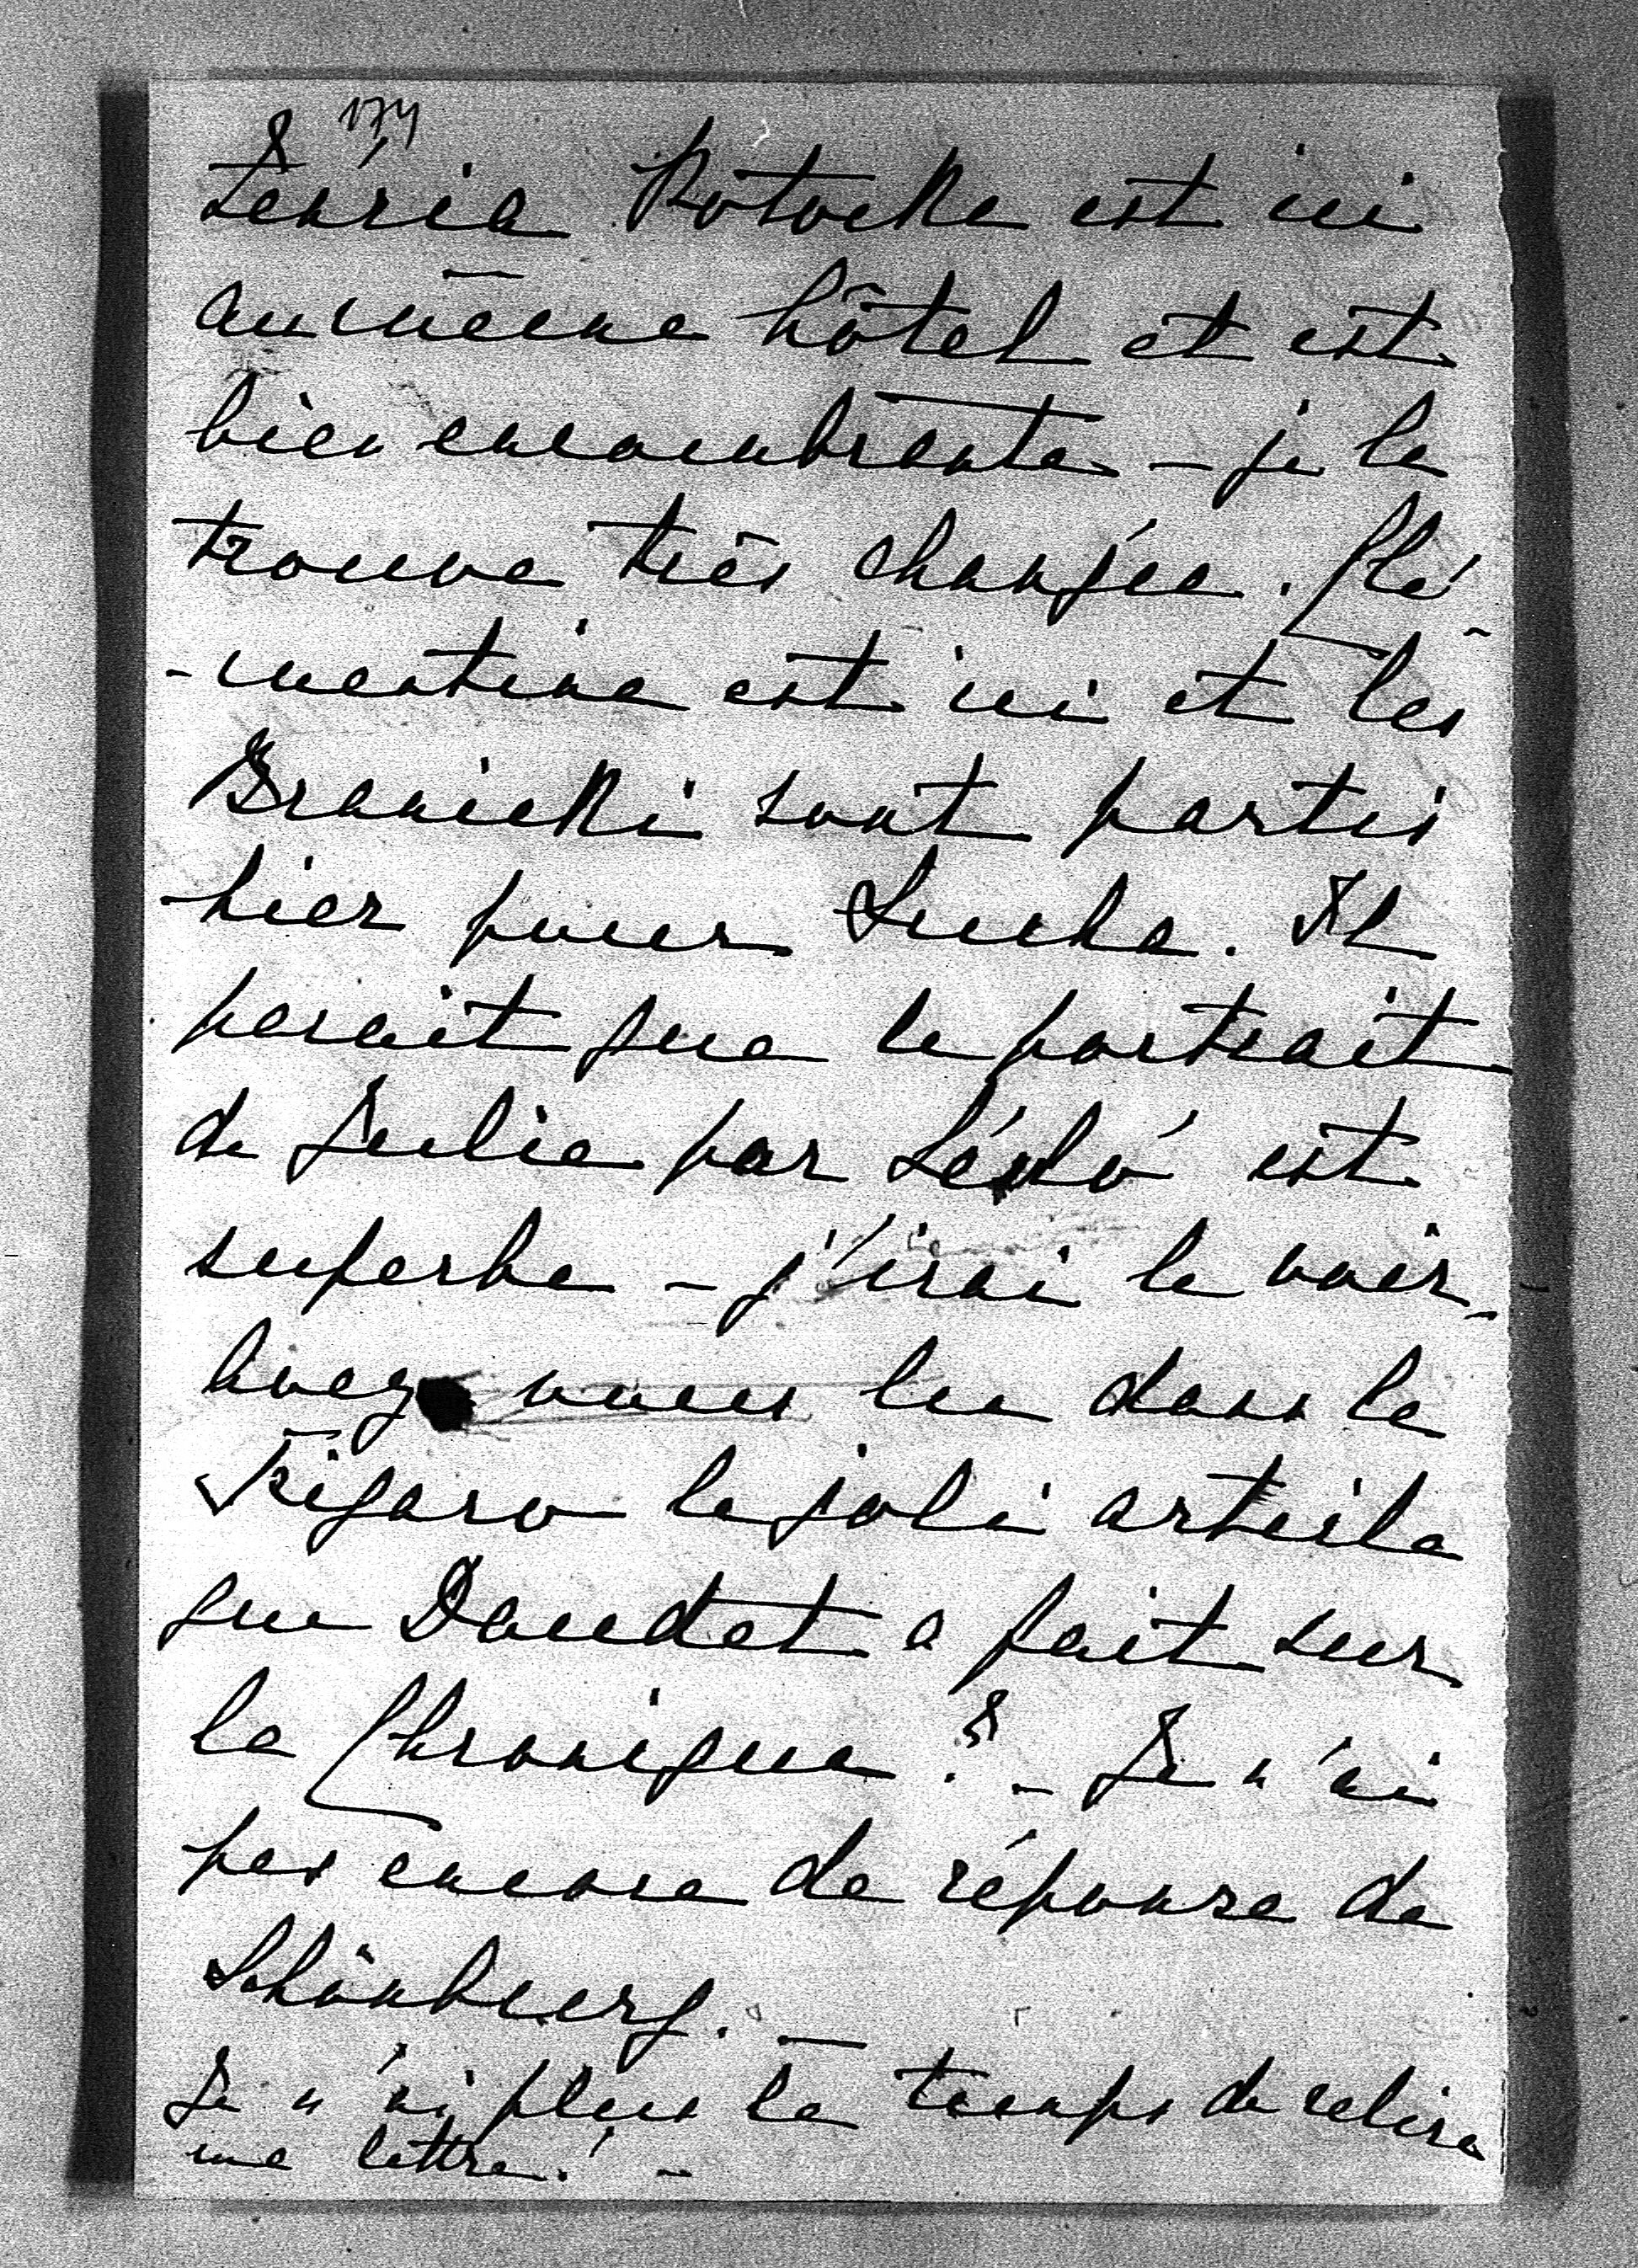 174
Xénia Potocka est ici
au même hôtel et est
bien encombrante – je la
trouve très changée. Clé-
-mentine est ici et les
Branicki sont partis
hier pour Sucha. Il
parait que le portrait
de Julia par László est
superbe – j'irai le voir –
Avez vous lu dans le
Figaro le joli article
que Daudet a fait sur
la Chronique? – Je n'ai
pas encore de réponse de
Schönburg. –
Je n'ai plus le temps de relire
ma lettre! –